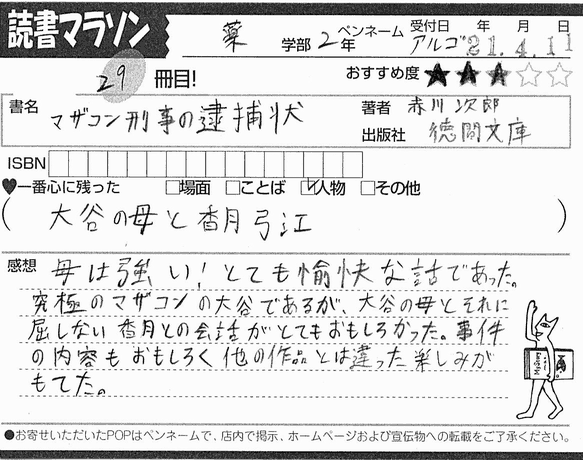 読書マラソン
薬 学部 2年 ペンネーム アルゴ 受付日 年 月 日 21.4.11
29 冊目! おすすめ度 ★★★☆☆
書名 マザコン刑事の逮捕状
著者 赤川次郎
出版社 徳間文庫
ISBN
♥一番心に残った □場面 □ことば ☑人物 □その他
(大谷の母と香月弓江)
感想 母は強い!とても愉快な話であった。
究極のマザコンの大谷であるが、大谷の母とそれに
屈しない香月との会話がとてもおもしろかった。事件
の内容もおもしろく他の作品とは違った楽しみが
もてた。
●お寄せいただいたPOPはペンネームで、店内で掲示、ホームページおよび宣伝物への転載をご了承ください。